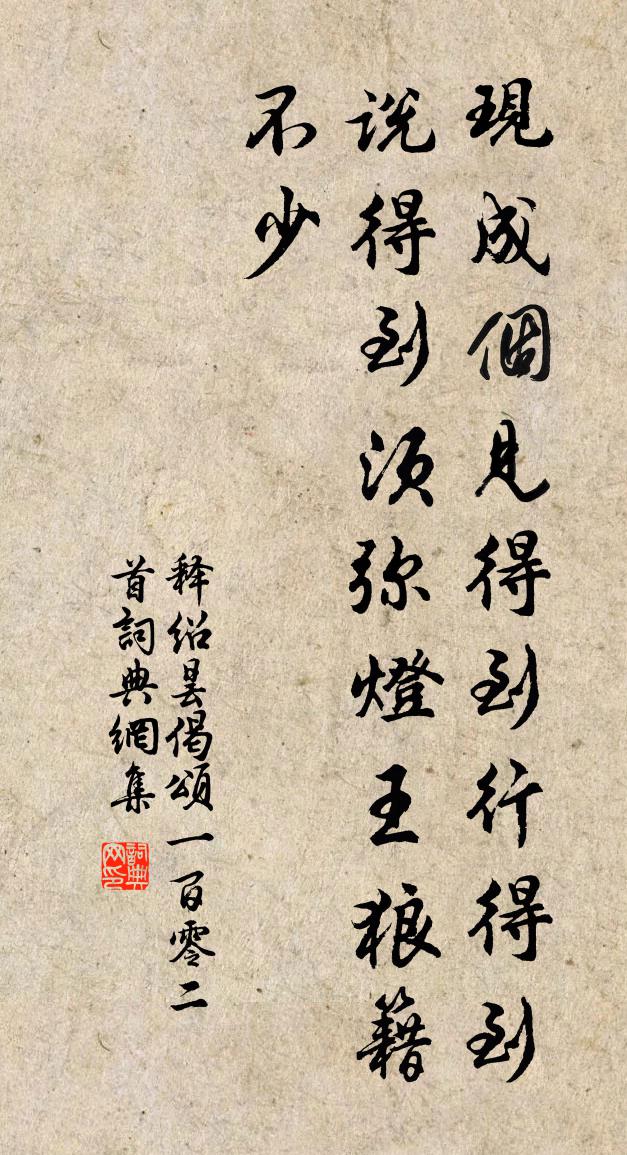 現成個見得到行得到
説得到須弥燈王狼籍
不少
释紹曇偈頌一百零二
首詞典網集
詞典
网印